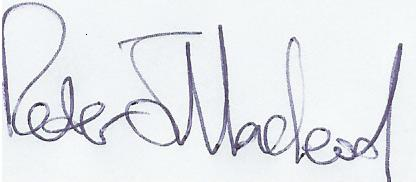 Peter J Macleod